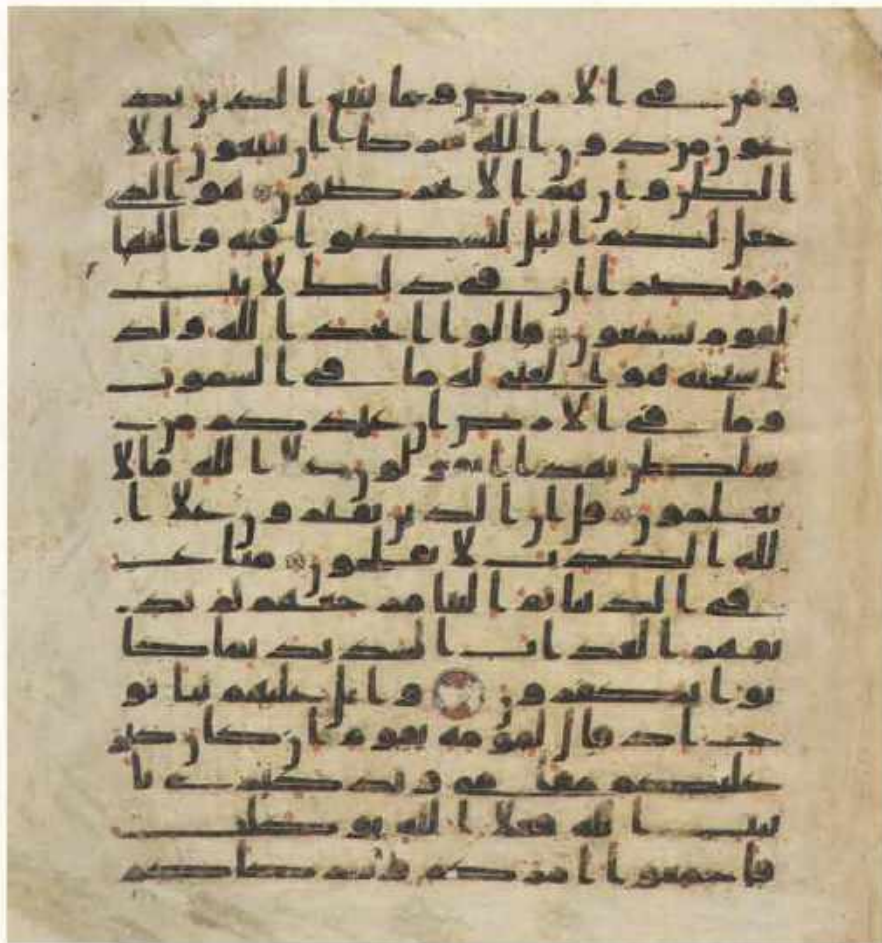 ومن في الارض وما يتبع الذين يد
عون من دون الله شركا ان يتبعون الا
الظن وان هم الا يخرصون هو الذي
جعل لكم اليل لتسكنوا فيه والنها
ر مبصرا ان في ذلك لايت
لقوم يسمعون قالوا اتخذ الله ولد
ا سبحنه هو الغني له ما في السموت
وما في الارض ان عندكم من
سلطن بهذا اتقولون على الله ما لا
تعلمون قل ان الذين يفترون على ا
لله الكذب لا يفلحون متاع
في الدنيا ثم الينا مرجعهم ثم نذ
يقهم العذاب الشديد بما كا
نوا يكفرون واتل عليهم نبا نو
ح اذ قال لقومه يقوم ان كان كبر
عليكم مقامي وتذكيري با
يت الله فعلى الله توكلت
فاجمعوا امركم وشركاكم